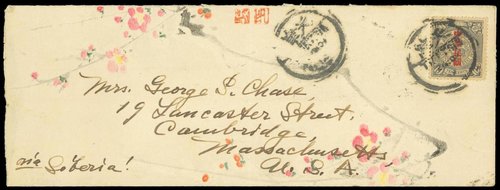 Mrs. George I. Chase
19 Lancaster Street.
Cambridge,
Massachusetts
U. S. A.
via Siberia!